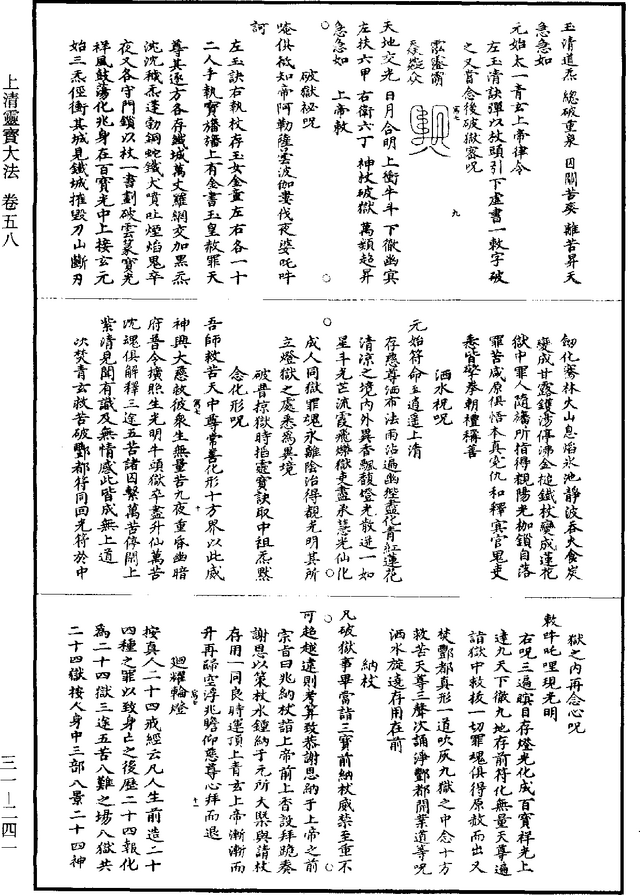 上清靈寶大法 卷五八
三一—二四一
玉清道炁 總破重泉 因閞苦爽 離苦昇天
急急如
元始太一青玄上帝律令
左玉清訣彈以杖頭引下虛書一敕字破
之又嘗念後破獄密呪
九
天地交光 日月合明 上衝斗牛 下徹幽冥
左扶六甲 右衛六丁 神杖破獄 萬類超昇
急急如 上帝敕
破獄祕呪
唵俱祗知帝阿勒薩雲波伽婁伐夜婆吒吽
訶
左玉訣右執杖存玉女金童左右各一十
二人手執寶旛旛上有金書玉皇赦罪天
尊其逐方各存鐵城萬丈羅網交加黑炁
沈沈穢炁蓬勃銅蛇鐵犬噴吐煙焰鬼卒
夜叉各守門鎖以杖一書劃破雲篆寶光
祥風鼓蕩化兆身在百寶光中上接玄元
始三炁徑衝其城見鐵城摧毀刀山斷刃
劒化騫林火山息焰氷池靜波吞火食炭
變成甘露鑊湯停沸金槌鐵杖變成蓮花
獄中罪人隨旛所指得覩陽光枷鎖自落
罪苦咸原俱悟本真寃仇和釋冥官鬼吏
悉皆擎拳朝禮稱善
洒水祝呪
元始符命 逍遙上清
存慈尊洒布法雨沾遍幽壥靈化青紅蓮花
清涼之境內外異香飄馥燈光散逆一如
星斗光芒流霞飛爍獄吏盡承慧光仙化
成人同獄罪魂永離陰治得覩光明其所
立燈獄之處悉爲異境
破普掠獄時掐靈寶訣取中祖炁默
念化形呪
吾師救苦天中尊常善化形十方界以此威
神興大慈救彼衆生無量苦九夜重昏幽暗
府普令擴照生光明牛頭獄卒盡升仙萬苦
沈魂俱解釋三途五苦諸囚繫萬苦停閞上
紫清見聞有識及無情感此皆成無上道
次焚青玄救苦破酆都符同回光符於中
獄之內再念心呪
敕吽吒哩現光明
右呪三遍瞑目存燈光化成百寶祥光上
達九天下徹九地存前符化無量天尊遍
詣獄中救拔一切罪魂俱得原赦而出又
焚酆都真形一道吹灰九獄之中念十方
救苦天尊三聲次誦淨酆都開業道等呪
洒水旋遶存用在前
納杖
凡破獄事畢當詣三寶前納杖威禁至重不
可趂越違則考算致恭謝思納于上帝之前
宗旨曰兆納杖詣上帝前上香設拜跪奏
謝恩以策杖水鐘納于元所大槩與請杖
存用一同良時運頂上青玄上帝漸漸而
升再歸空浮兆瞻仰慈尊心拜而退
十一
廻耀輪燈
按真人二十四戒經云凡人生前造二十
四種之罪以致身亡之後歷二十四報化
爲二十四獄三途五苦八難之場八獄共
二十四獄按人身中三部八景二十四神